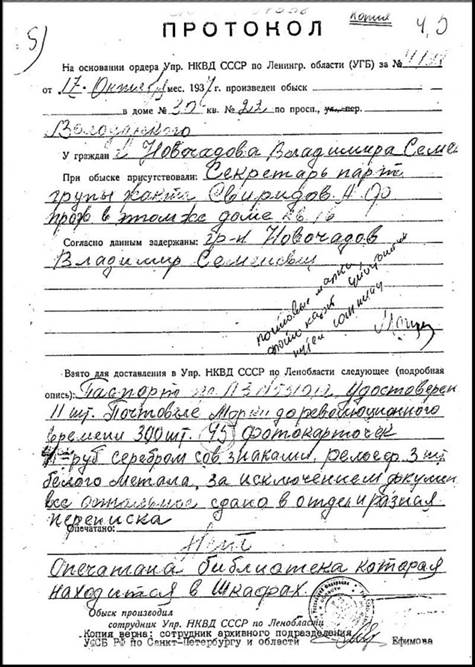 копия
5)
4,5
ПРОТОКОЛ
На основании ордера Упр. НКВД СССР по Ленингр. области (УГБ) за №
от 17. Октября мес. 1937 г. произведен обыск
в доме № 30 кв. № 27 по просп., ул., пер.
Володарского
У граждан Новочадова Владимира Семе
При обыске присутствовали: Секретарь парт
групы жакта Свиридов. А.
прож в этом же доме кв 16
Согласно данным задержаны: гр-н Новочадов
Владимир Семенович
почтовые марки
фотокарт
путем
Взято для доставления в Упр. НКВД СССР по Ленобласти следующее (подробная
опись): Паспорт Удостоверен
11 шт. Почтовые Марки дореволюционного
времени 300 шт. 45 фотокарточек
руб серебром сов знаками, 3 шт
белого метала, за исключением
все остальное сдано в отдел разная
переписка
Опечатано:
Нет
Опечатана библиотека которая
находится в Шкафах.
Обыск производил
сотрудник Упр. НКВД СССР по Ленобласти
Копия верна: сотрудник архивного подразделения
УФСБ РФ по Санкт-Петербургу и области Ефимова